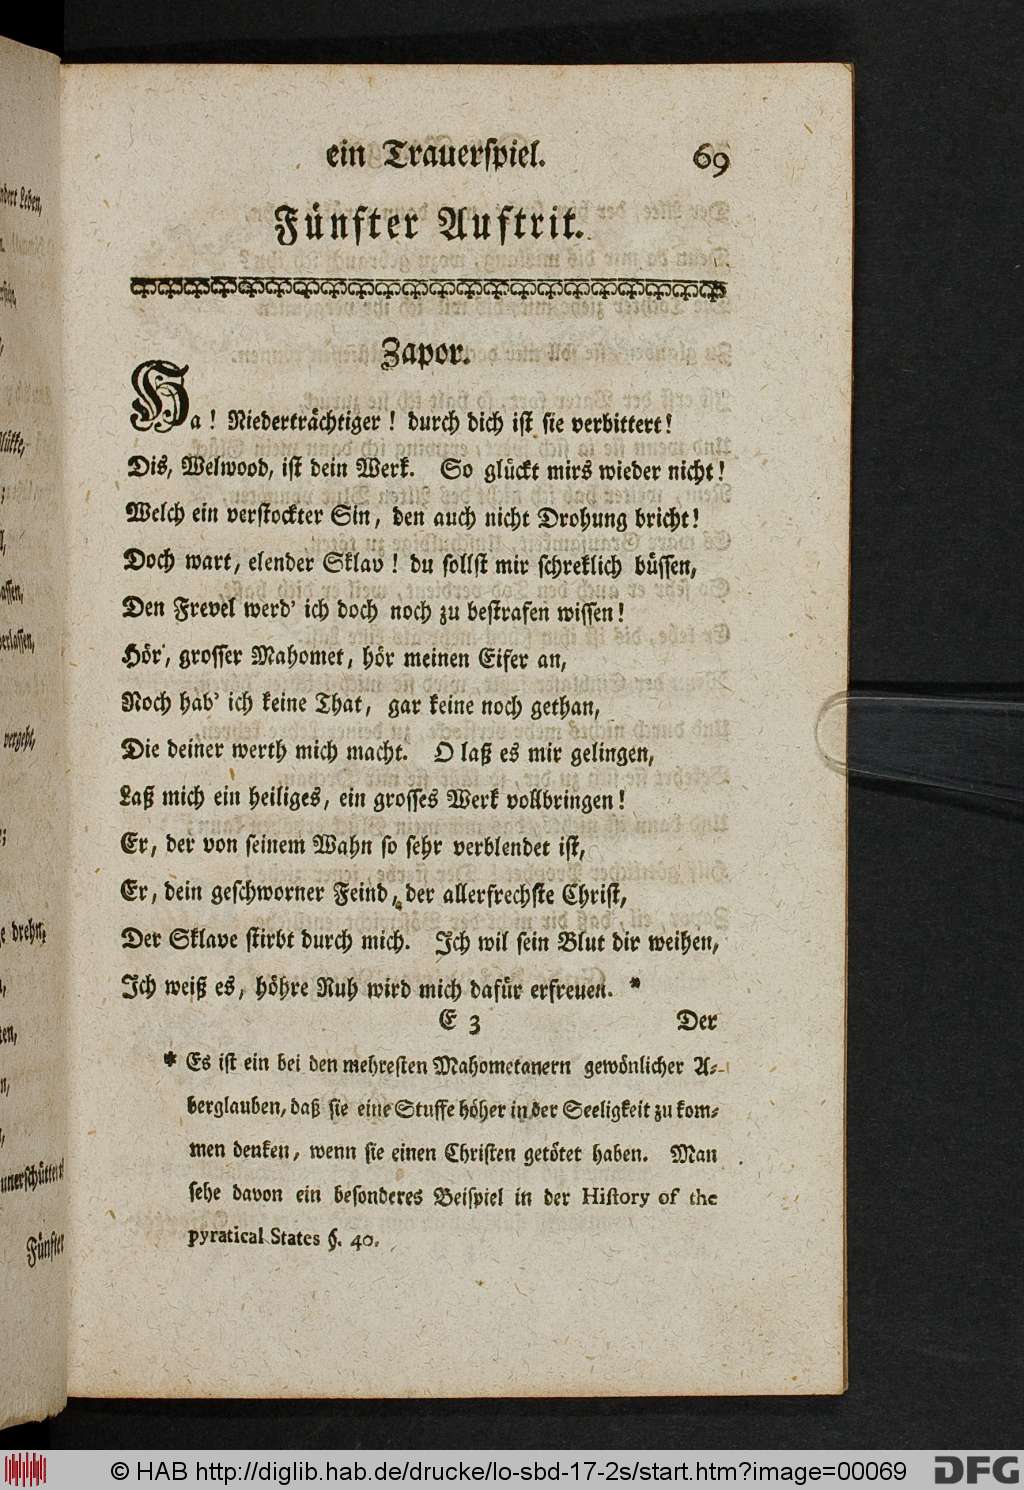 ein Trauerspiel. 69
Fünfter Auftrit.
Zapor.
Ha! Niederträchtiger! durch dich ist sie verbittert!
Dis, Welwood, ist dein Werk. So glückt mirs wieder nicht!
Welch ein verstockter Sin, den auch nicht Drohung bricht!
Doch wart, elender Sklav! du sollst mir schreklich büssen,
Den Frevel werd' ich doch noch zu bestrafen wissen!
Hör', grosser Mahomet, hör meinen Eifer an,
Noch hab' ich keine That, gar keine noch gethan,
Die deiner werth mich macht. O laß es mir gelingen,
Laß mich ein heiliges, ein grosses Werk vollbringen!
Er, der von seinem Wahn so sehr verblendet ist,
Er, dein geschworner Feind, der allerfrechste Christ,
Der Sklave stirbt durch mich. Ich wil sein Blut dir weihen,
Ich weiß es, höhre Ruh wird mich dafür erfreuen. *
E 3 Der
* Es ist ein bei den mehresten Mahometanern gewönlicher A-
berglauben, daß sie eine Stuffe höher in der Seeligkeit zu kom-
men denken, wenn sie einen Christen getötet haben. Man
sehe davon ein besonderes Beispiel in der History of the
pyratical States §. 40.
ndert Leben,
vergeht,
e drehn,
unerschüttert
Fünfter
© HAB http://diglib.hab.de/drucke/lo-sbd-17-2s/start.htm?image=00069
DFG